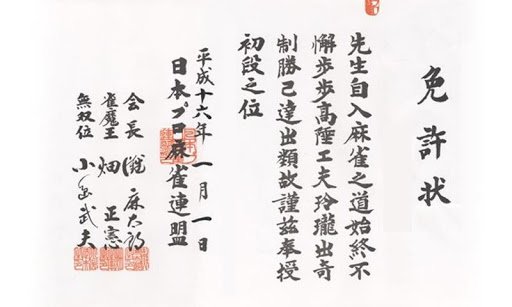 免許状
先生自入麻雀之道始終不
懈歩歩高陞工夫玲瓏出奇
制勝已達出類故謹玆奉授
初段之位
平成十六年一月一日
日本プロ麻雀連盟
会長 麻太郎
雀魔王 畑 正憲
無双位 小島武夫